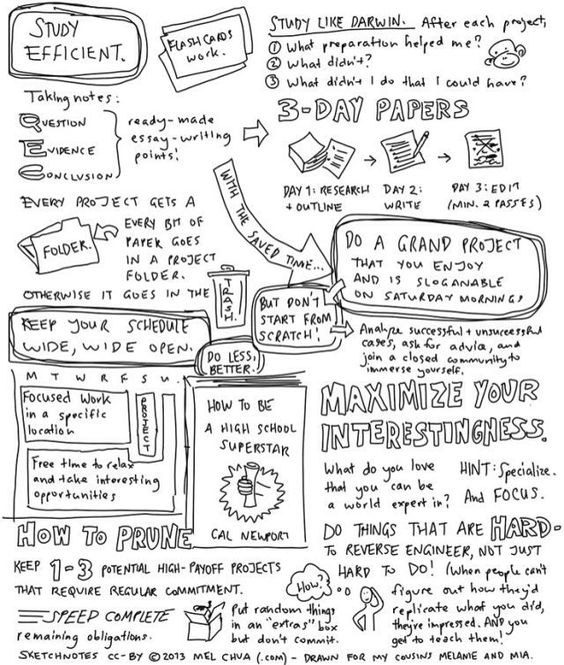 STUDY
EFFICIENT.
FLASH CARDS
WORK.
STUDY LIKE DARWIN. After each project,
① What preparation helped me?
② What didn't?
③ What didn't I do that I could have?
Taking notes:
QUESTION
EVIDENCE
CONCLUSION
ready-made
essay-writing
points!
3-DAY PAPERS
DAY 1: RESEARCH
+ OUTLINE
DAY 2:
WRITE
DAY 3: EDIT
(MIN. 2 PASSES)
EVERY PROJECT GETS A
FOLDER.
EVERY BIT OF
PAPER GOES
IN A PROJECT
FOLDER.
OTHERWISE IT GOES IN THE
TRASH.
WITH THE SAVED TIME...
DO A GRAND PROJECT
THAT YOU ENJOY
AND IS SLOGANABLE
ON SATURDAY MORNINGS
BUT DON'T
START FROM
SCRATCH!
Analyze successful + unsuccessful
cases, ask for advice, and
join a closed community to
immerse yourself.
KEEP YOUR SCHEDULE
WIDE, WIDE OPEN.
DO LESS,
BETTER.
M T W R F S U.
Focused Work
in a specific
location
PROJECT
Free time to relax
and take interesting
opportunities
HOW TO BE
A HIGH SCHOOL
SUPERSTAR
CAL NEWPORT
MAXIMIZE YOUR
INTERESTINGNESS.
What do you love
that you can be
a world expert in?
HINT: Specialize.
And FOCUS.
HOW TO PRUNE
KEEP 1-3 POTENTIAL HIGH-PAYOFF PROJECTS
THAT REQUIRE REGULAR COMMITMENT.
SPEED COMPLETE
remaining obligations.
Put random things
in an "extras" box
but don't commit.
DO THINGS THAT ARE HARD-
TO REVERSE ENGINEER, NOT JUST
HARD TO DO! (When people can't
figure out how they'd
replicate what you did,
they're impressed. AND you
get to teach them!
How?
SKETCHNOTES CC-BY © 2013 MEL CHUA (.COM) - DRAWN FOR MY COUSINS MELANIE AND MIA.